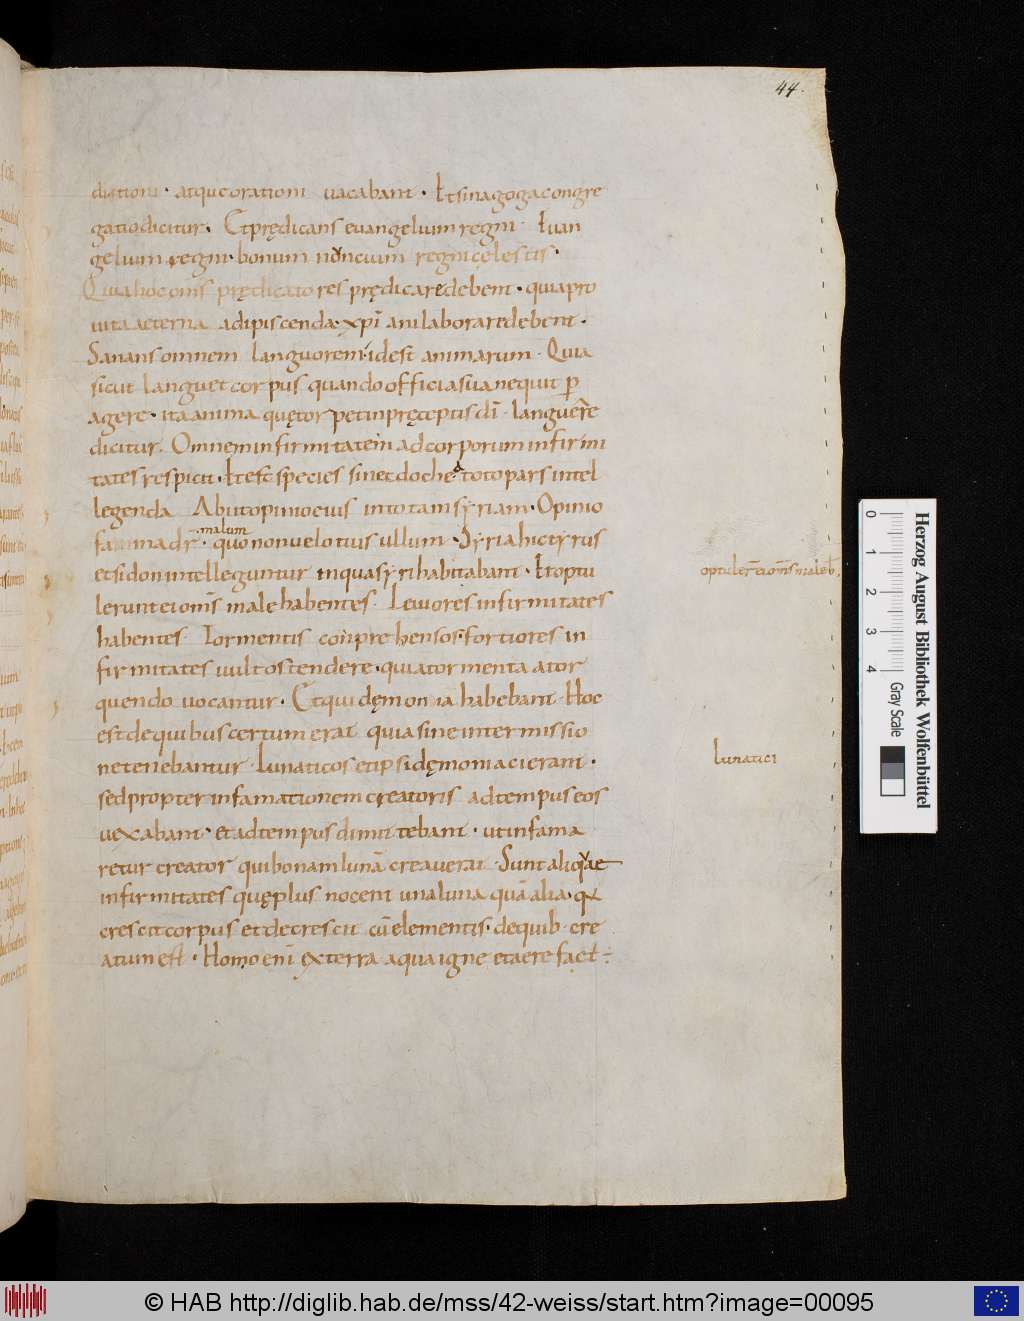 44.
dictioni · atque orationi vacabant · Et sinagoga congre
gatio dicitur · Et prędicans euangelium regni · Euan
gelium regni · bonum nuncium regni cęlestis ·
Quia hoc om̄s prędicatores prędicare debent · quia pro
uita aeterna adipiscenda xp̄i ani laborare debent ·
Sanans omnem languorem · idest animarum · Quia
sicut languet corpus quando officia sua nequit p̱
agere · ita anima quę torpet in pręceptis dī · languere
dicitur. Omnem infirmitatem ad corporum infirmi
tates respicit · Et est species sinecdoche · a toto pars intel
legenda Abiit opinio eius in totam syriam · Opinio
malum
quo non uelotius ullum · Syria hic tyrus
et sidon intelleguntur in qua syri habitabant · Et optu
lerunt ei om̄s male habentes · Leuiores infirmitates
habentes · Tormentis conprehensos · fortiores in
firmitates uult ostendere · quia tormenta a tor
quendo uocantur · Et qui dęmonia habebant · Hoc
est de quibus certum erat quia sine intermissio
ne tenebantur · Lunaticos et ipsi dęmoniaci erant ·
sed propter infamationem creatoris ad tempus eos
uexabant · et ad tempus dimittebant · ut infama
retur creator qui bonam lunā creauerat · Sunt aliquae
infirmitates quę plus nocent una luna quā alia · q̄
crescit corpus et decrescit cū elementis · de quib · cre
atum est · Homo enī ex terra aqua igne et aere fact̄ :
optulerr̄ ei om̄s male hb̄.
Lunatici
Herzog August Bibliothek Wolfenbüttel
0 1 2 3 4 Gray Scale
© HAB http://diglib.hab.de/mss/42-weiss/start.htm?image=00095